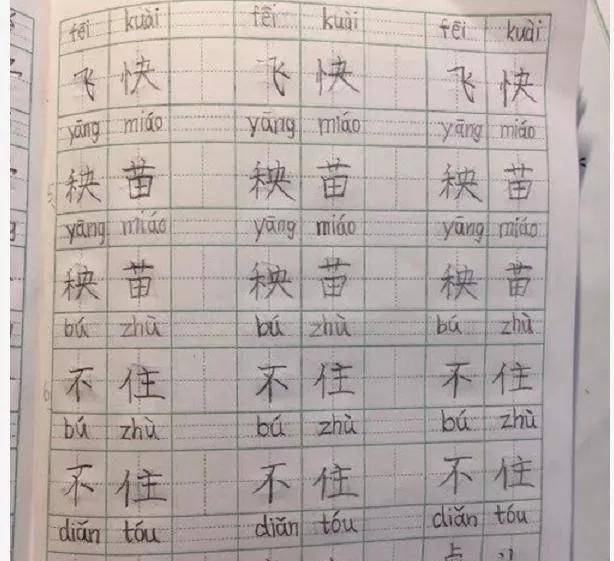 fēi kuài fēi kuài fēi kuài
飞快 飞快 飞快
yāng miáo yāng miáo yāng miáo
秧苗 秧苗 秧苗
yāng miáo yāng miáo yāng miáo
秧苗 秧苗 秧苗
bú zhù bú zhù bú zhù
不住 不住 不住
bú zhù bú zhù bú zhù
不住 不住 不住
diǎn tóu diǎn tóu diǎn tóu